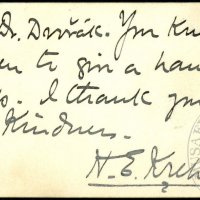 Dr. Dvořák. You kn
en to give a han
s. I thank you
Kindness.
H. E. Kreh